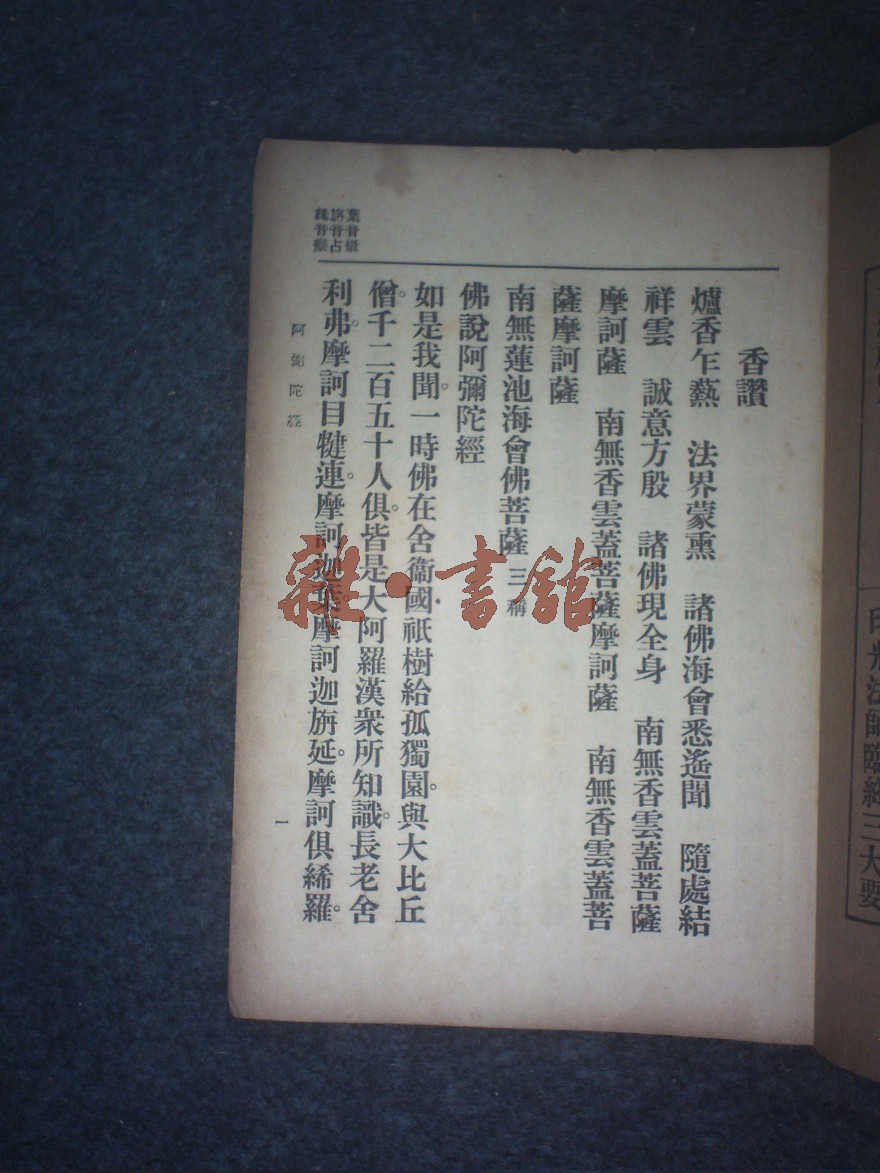 香讚
爐香乍爇　法界蒙熏　諸佛海會悉遙聞　隨處結
祥雲　誠意方殷　諸佛現全身　南無香雲蓋菩薩
摩訶薩　南無香雲蓋菩薩摩訶薩　南無香雲蓋菩
薩摩訶薩
南無蓮池海會佛菩薩 三稱
佛說阿彌陀經
如是我聞。一時佛在舍衞國。祇樹給孤獨園。與大比丘
僧。千二百五十人俱。皆是大阿羅漢。衆所知識。長老舍
利弗。摩訶目犍連。摩訶迦葉。摩訶迦旃延。摩訶俱絺羅。
葉音攝
旃音占
絺音癡
阿彌陀經
一
印光法師臨終三大要
雜·書館